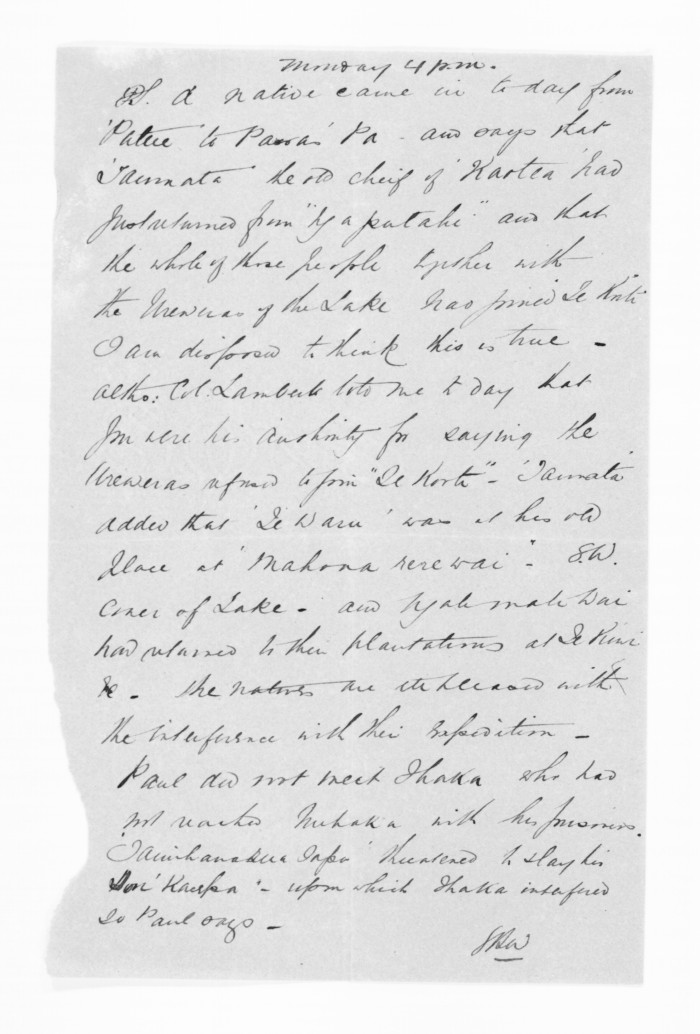 Monday 4 p.m.
P.S. A native came in to day from
'Patee' to Pawas' Pa - and says that
'Taumata' the old cheif of 'Kaotea' had
just returned from "Ngaputahi" and that
the whole of those people together with
the Ureweras of the Lake has joined Te Kooti
I am disposed to think this is true -
altho: Col: Lambert told me to day that
you were his authority for saying the
Ureweras refused to join "Te Kooti" - 'Taumata'
added that 'Te Waru' was at his old
place at "Mahona rerewai" - S.W.
Coner of Lake - and Ngati mate Wai
had returned to their plantations at Te Kiwi
&c - The natives are displeased with
the interference with their expedition -
Paul did not meet Ihaka who had
not reached Nuhaka with his prisoners.
'Tapu' threatened to slay his
Son - upon which Ihaka interfered
So Paul says -